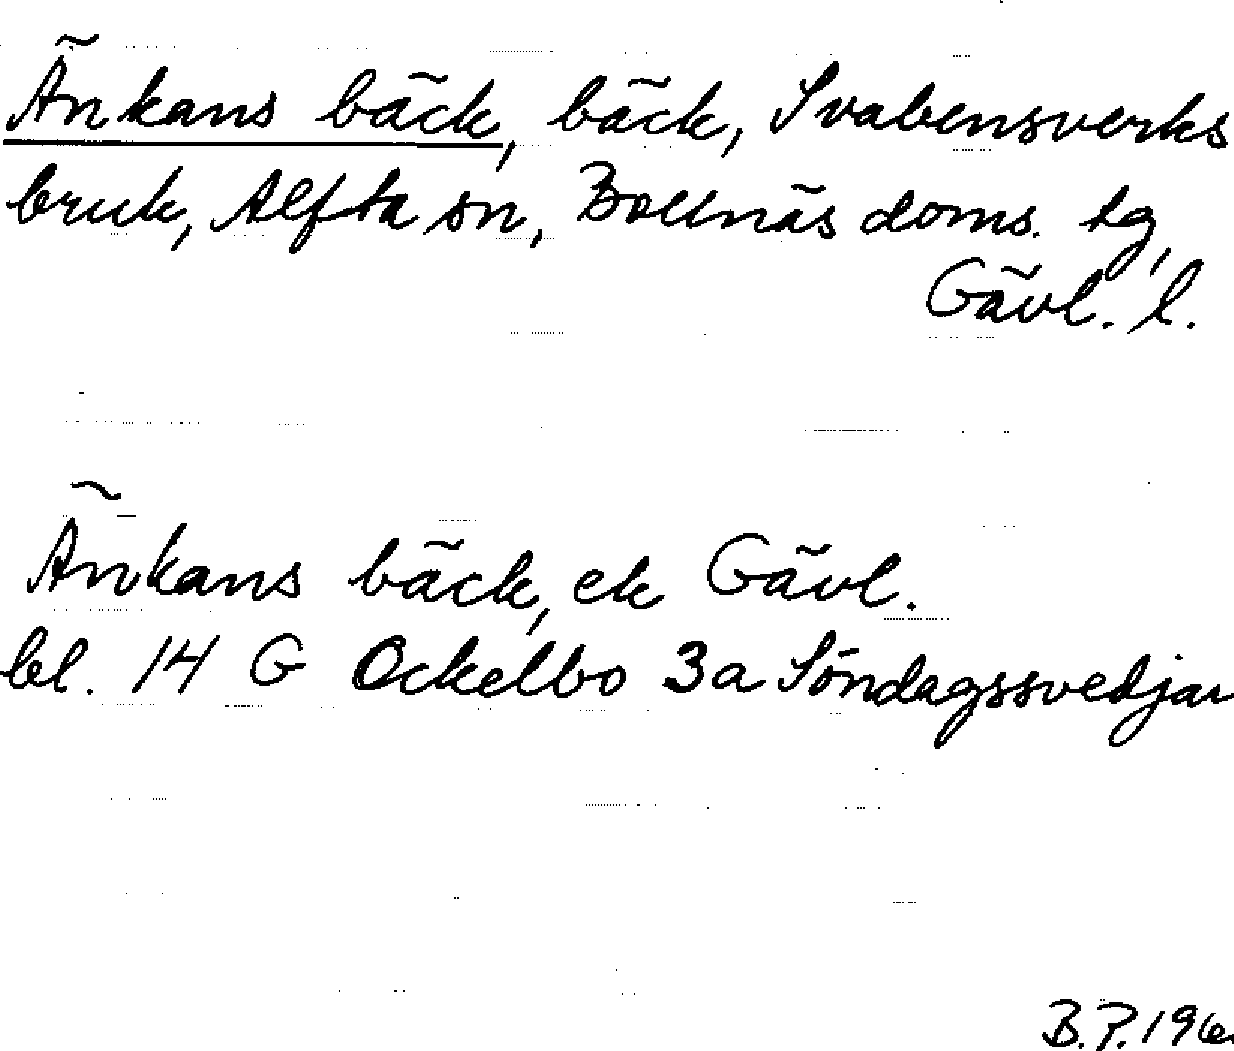 Änkans bäck, bäck, Svabensverks
bruk, Alfta sn, Bollnäs doms. tg,
Gävl. l.
Änkans bäck, ek Gävl.
bl. 14 G Ockelbo 3a Söndagssvedjar
B.P. 196